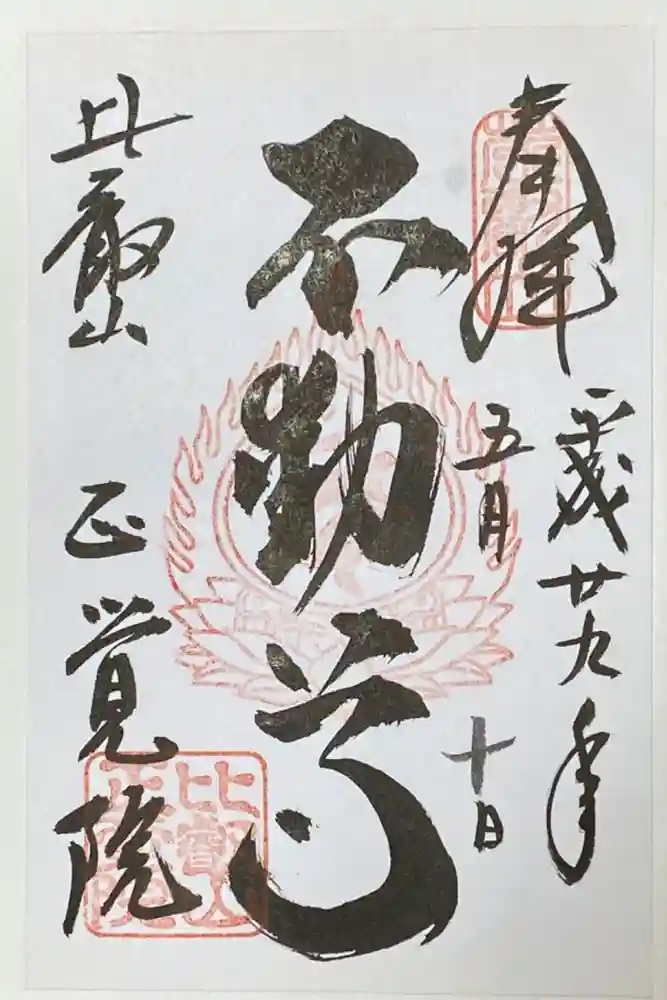 奉拝
平成廿九年
五月十日
不動尊
比叡山 正覚院
比叡山